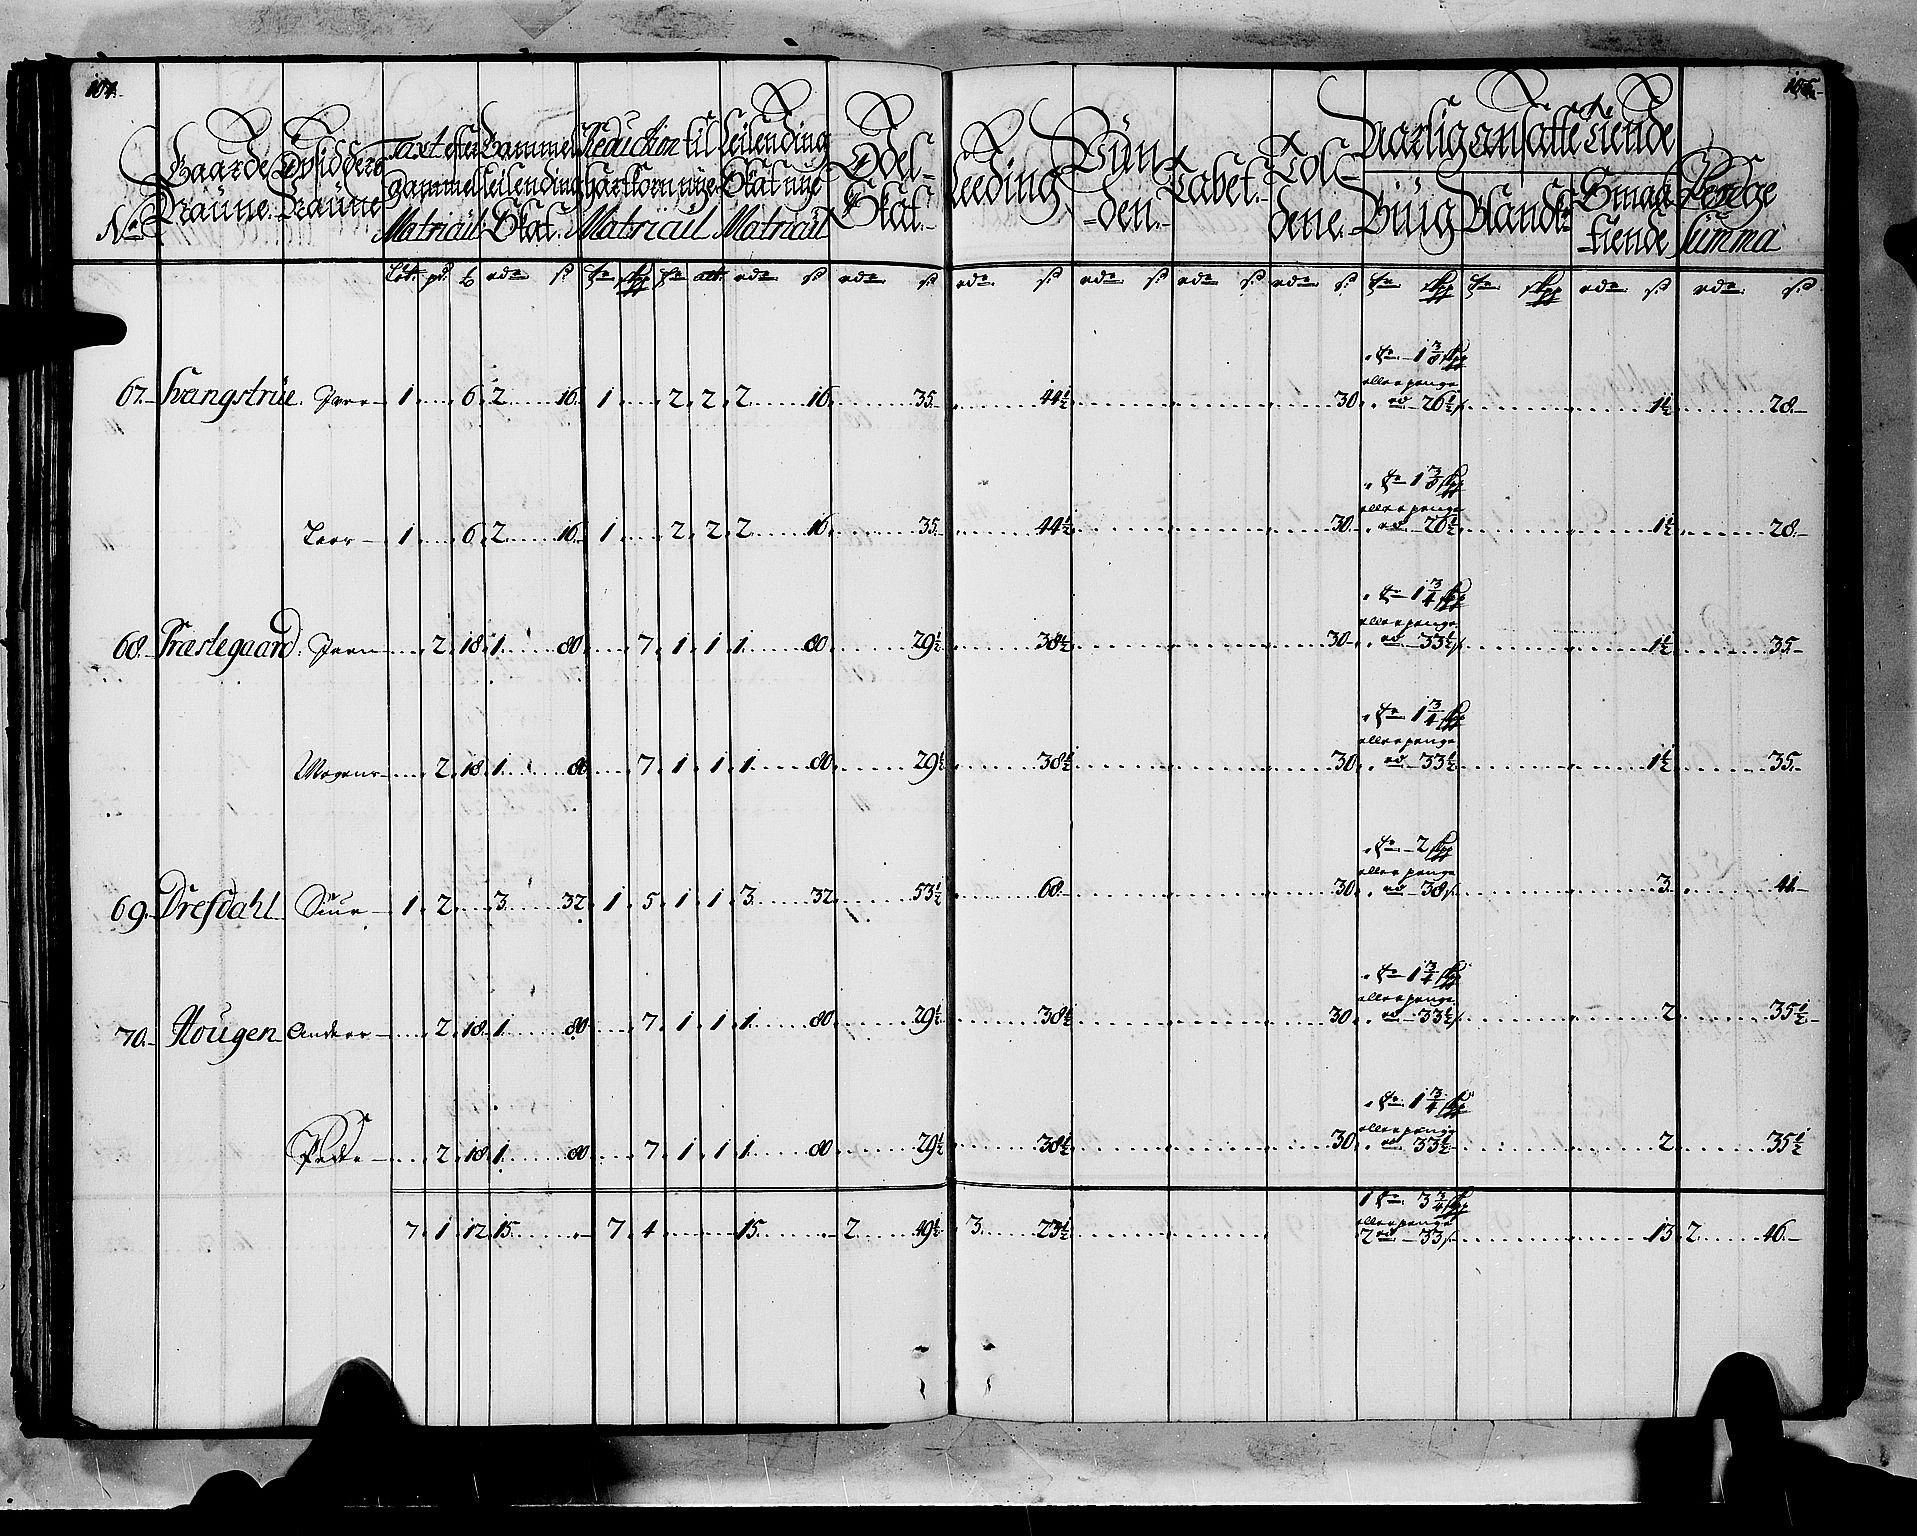 104. 105.
No. Gaarde Naune. Opsiddere Naune Taxt efter gammel Matricul Gammel Leilending Skat. Reduction til hartkorn nye Matricul Leilending Skat nye Matricul Odel Skat. Leeding Vün den. Tabet. Tol dene. Aarlig ansatte Tiende Büig Blandk. Smaa Tiende Penge Summa
67. Svangstrue. Iver 1 6 2 16 1 2 2 2 16 35 44½ 30 1 3/8 skpp eller penge rd 26½ 1½ 28
Lars 1 6 2 16 1 2 2 2 16 35 44½ 30 1 3/8 skpp eller penge rd 26½ 1½ 28
68. Præstegaard. Iven 2 18 1 80 7 1 1 1 80 29½ 38½ 30 1 3/4 skpp eller penge rd 33½ 1½ 35
Mogens 2 18 1 80 7 1 1 1 80 29½ 38½ 30 1 3/4 skpp eller penge rd 33½ 1½ 35
69. Drefdahl Siur 1 2 3 32 1 5 1 1 3 32 53½ 68 30 2 skpp eller penge rd 38 3 41
70. Hougen Anders 2 18 1 80 7 1 1 1 80 29½ 38½ 30 1 3/4 skpp eller penge rd 33½ 2 35½
Peder 2 18 1 80 7 1 1 1 80 29½ 38½ 30 1 3/4 skpp eller penge rd 33½ 2 35½
7 1 12 15 7 4 15 2 49½ 3 23½ 1 tn 3 3/4 skpp eller penge 2 rd 33 13 2 46